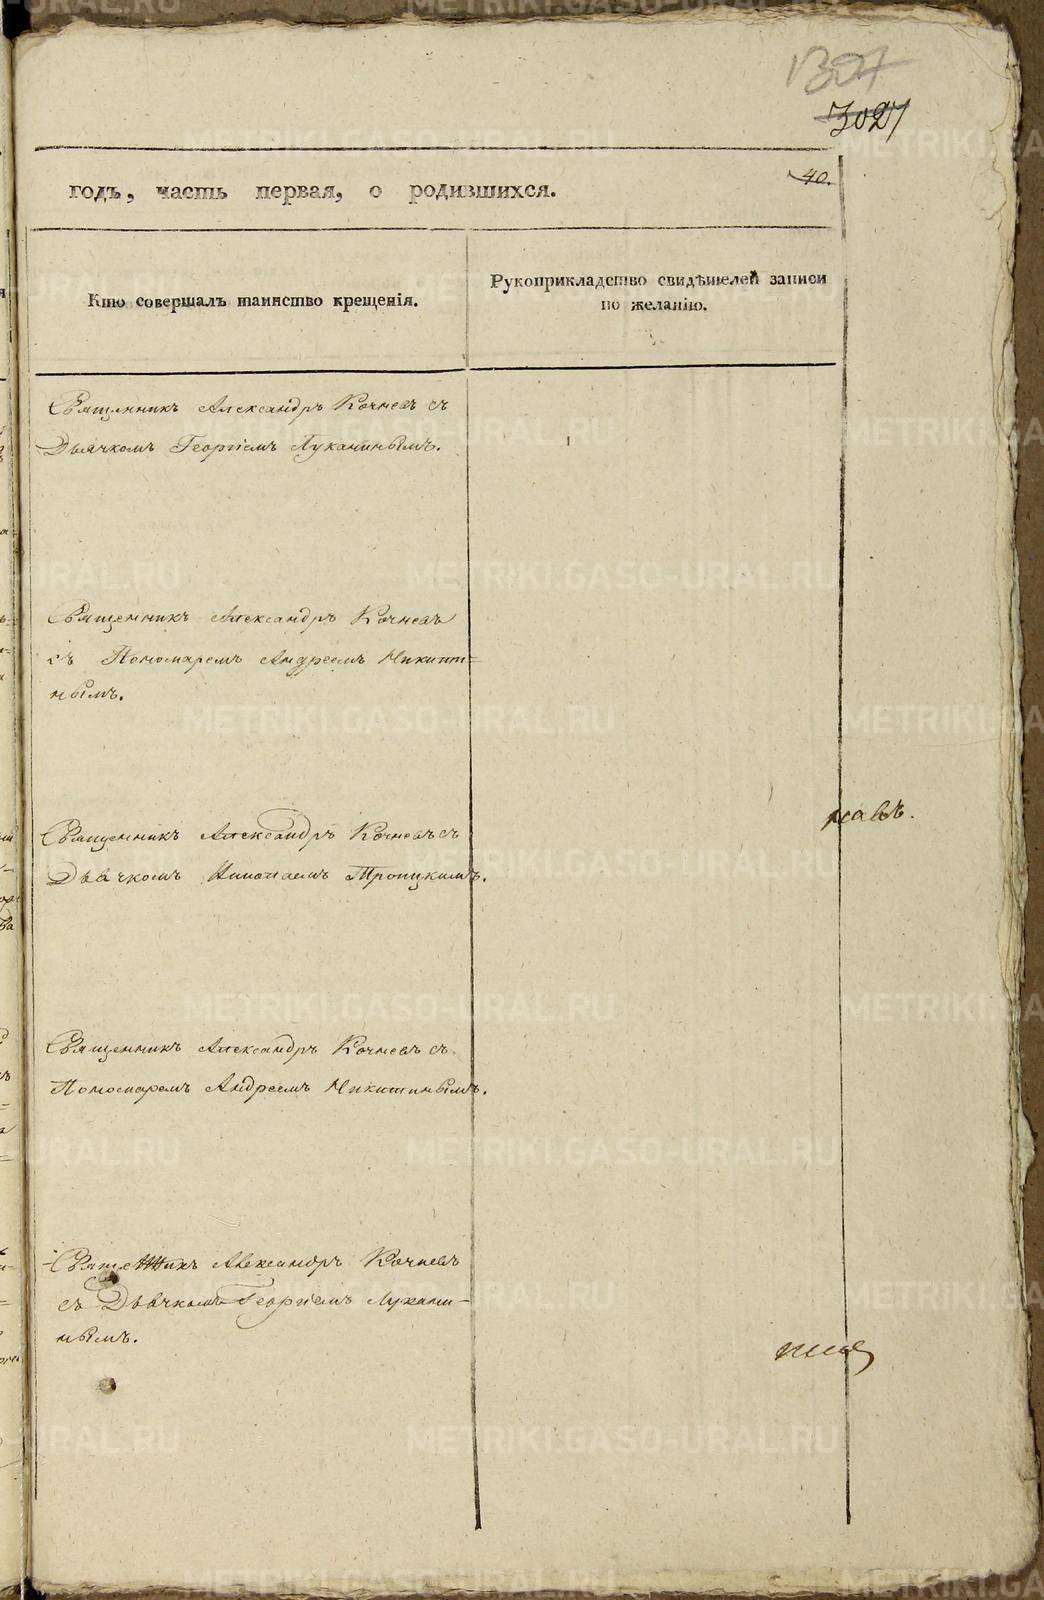 1307
3027
40.
годъ, часть первая, о родившихся.
Кто совершалъ таинство крещенія.
Рукоприкладство свидѣтелей записи
по желанію.
Священникъ Александръ Кочневъ съ
Дьячкомъ Георгіемъ Луканинымъ.
Священникъ Александръ Кочневъ
съ Пономаремъ Андреемъ Никити=
нымъ.
навъ.
Священникъ Александръ Кочневъ съ
Дьячкомъ Николаемъ Троицкимъ.
Священникъ Александръ Кочневъ съ
Пономаремъ Андреемъ Никитинымъ.
Священникъ Александръ Кочневъ
съ Дьячкомъ Георгіемъ Лукани-
нымъ.
METRIKI.GASO-URAL.RU